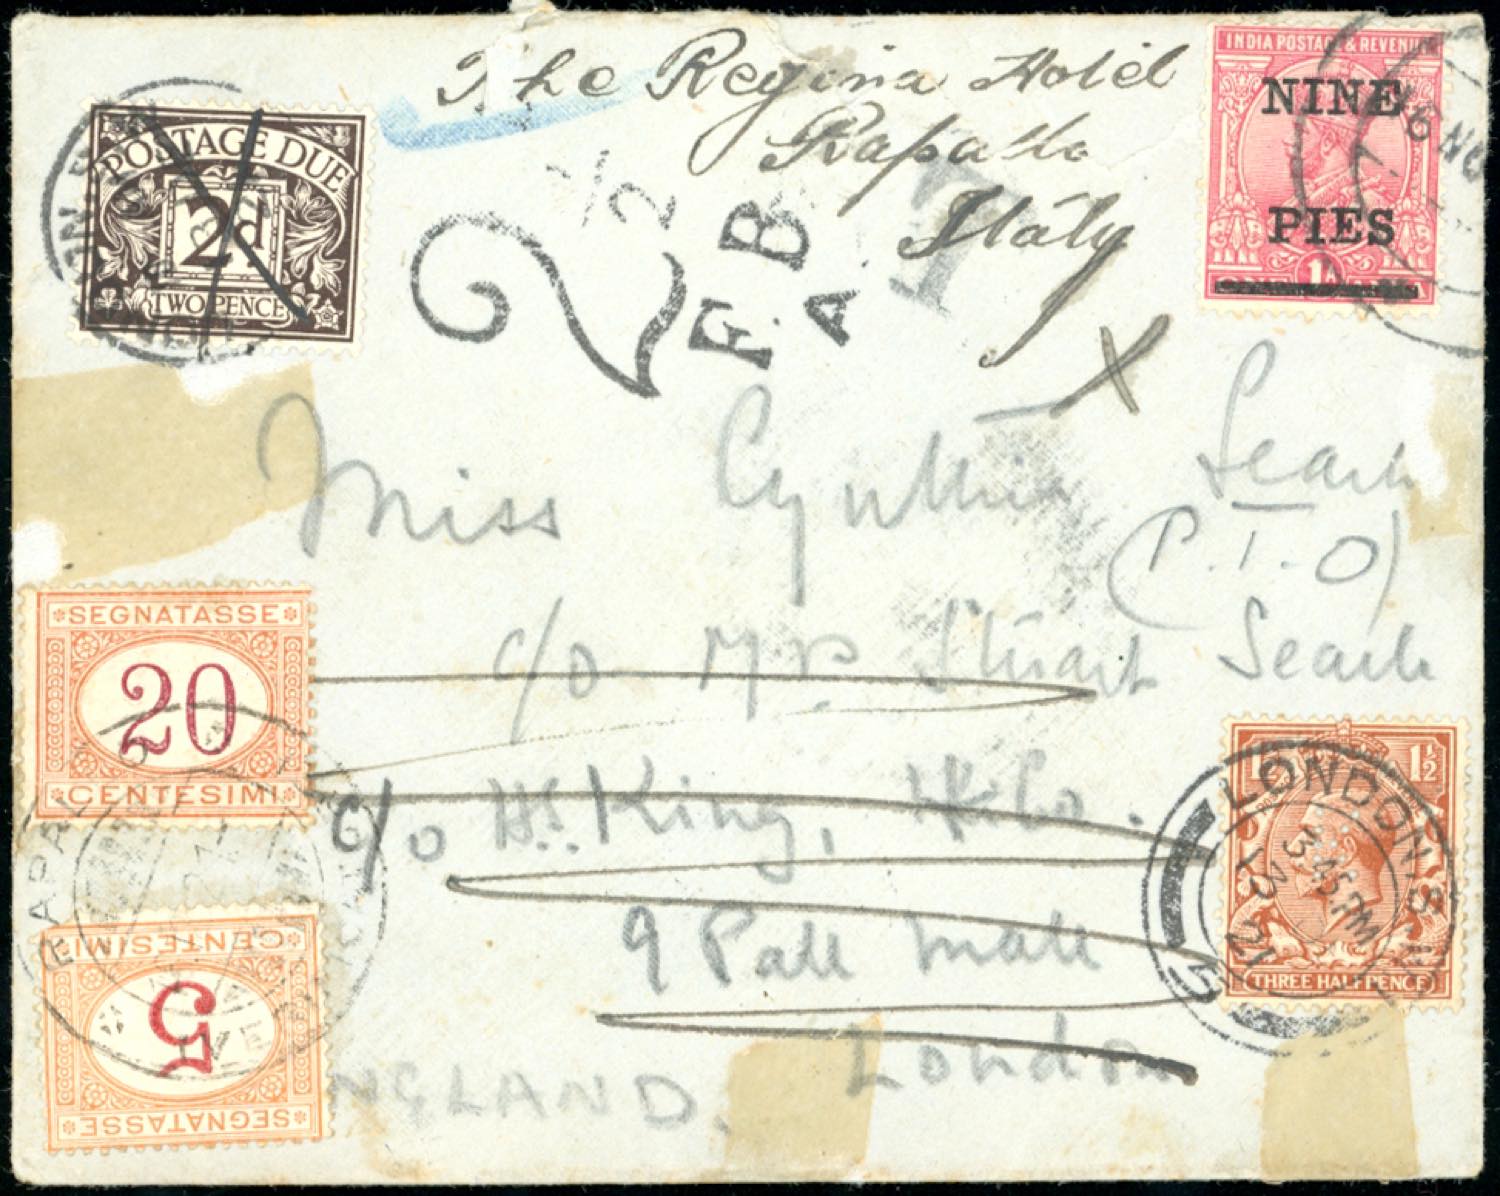 The Regina Hotel
Rapallo
Italy
INDIA POSTAGE & REVENUE
NINE
PIES
1A
POSTAGE DUE
2d
TWO PENCE
2 1/2
F.B.
A.
T
X
Miss Cynthia Searle
(P.T.O)
c/o Mr Stuart Searle
c/o H.S. King, & Co.
9 Pall Mall
London
ENGLAND.
*SEGNATASSE*
20
*CENTESIMI*
*SEGNATASSE*
5
*CENTESIMI*
1½
THREE HALFPENCE
LONDON. S.W.
3.45 PM
13. 21
5
LONDON
RAPALLO